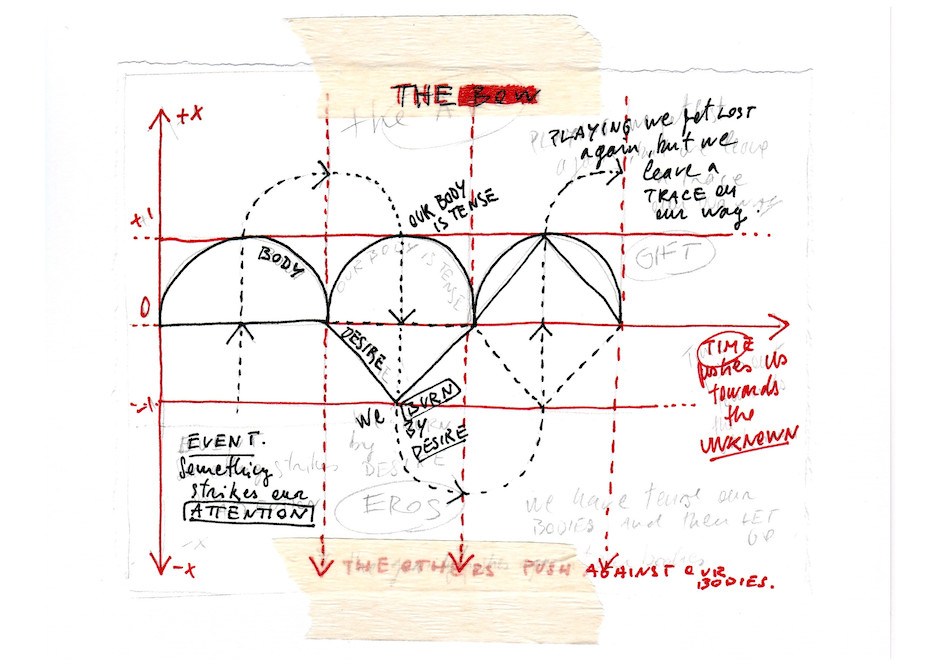 THE Bow
the A
+X
PLAYING we get LOST
again, but we
leave a
TRACE on
our way.
+1
OUR BODY
IS TENSE
BODY
OUR BODY IS TENSE
GIFT
0
DESIRE
TIME
pushes us
towards
the
UNKNOWN
-1
We BURN
BY
DESIRE
EVENT.
Something
strikes our
ATTENTION
by
DESIRE
EROS
we have tense our
BODIES and then LET
GO
-X
-X
THE OTHERS PUSH AGAINST OUR
BODIES.